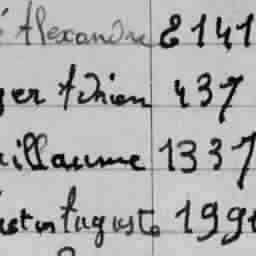 Alexandre 8141
ger Adrien 437
uillaume 1337
ustin Auguste 199